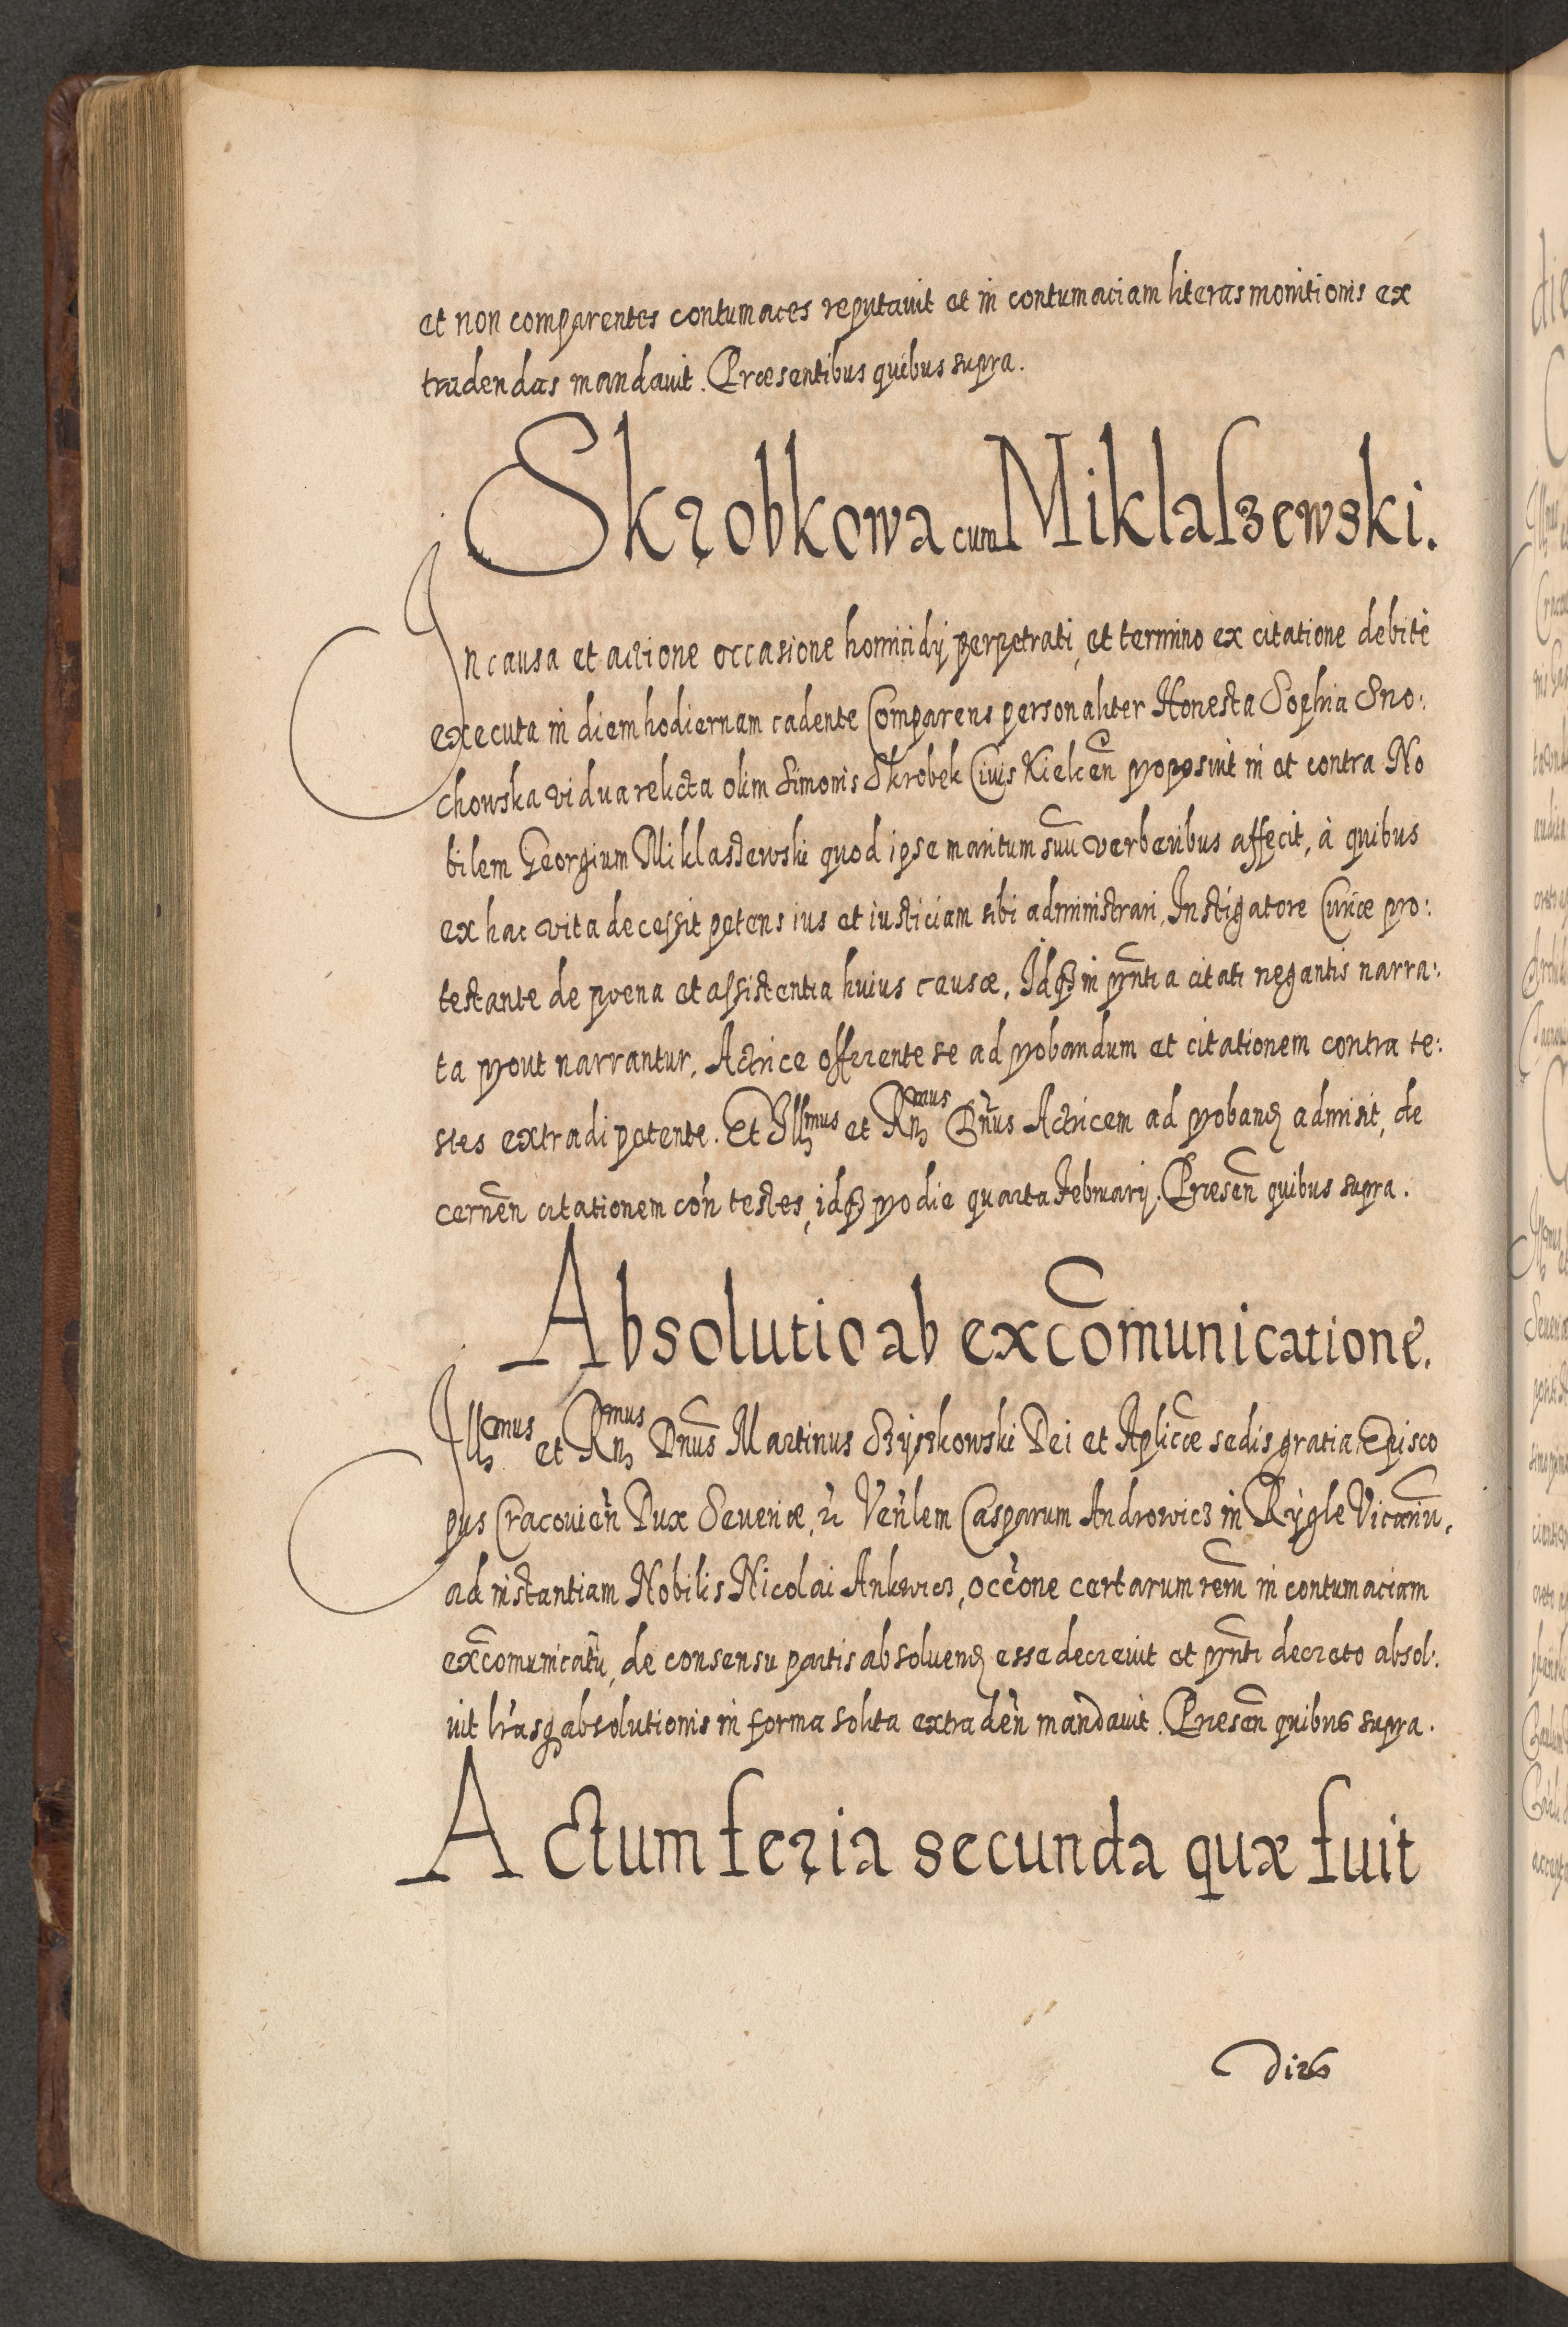 et non comparentes contumaces reputauit et in contumaciam literas monitionis ex
tradendas mandauit. Præsentibus quibus supra.
Skrobkowa cum Miklaſzewski.
In causa et actione occasione homicidÿ perpetrati, et termino ex citatione debitè
executa in diem hodiernam cadente Comparens personaliter Honesta Sophia Sno:
chowska vidua relicta olim Simonis Skrobek Ciuis Kielceñ proposuit in et contra No
bilem Georgium Miklaszewski quod ipse maritum suũ verberibus affecit, à quibus
ex hac vita decessit petens ius et iusticiam sibi administrari, Instigatore Curiæ pro:
testante de poena et assistentia huius causæ. Idq̃ in pñtia citati negantis narra:
ta prout narrantur. Actrice offerente se ad probandum et citationem contra te:
stes extradi petente. Et Illmus et Rñmus Dñus Actricem ad proband admisit, de
cerneñ citationem coñ testes, idq̃ pro die quarta Februarÿ. Præseñ quibus supra.
Absolutio ab excõmunicatione.
Illmus et Rñmus Dñus Martinus Szÿszkowski Dei et Aplicæ sedis gratia Episco
pus Cracouieñ Dux Seueriæ, Veñlem Casparum Androwicz in Rÿgle Vicariũ,
ad instantiam Nobilis Nicolai Ankwicz, occ̃one certarum rerũ in contumaciam
excõmunicatũ, de consensu partis absoluend esse decreuit et pñti decreto absol:
uit lr̃asq absolutionis in forma solita extradeñ mandauit. Præseñ quibus supra.
Actum feria secunda quæ fuit
dies